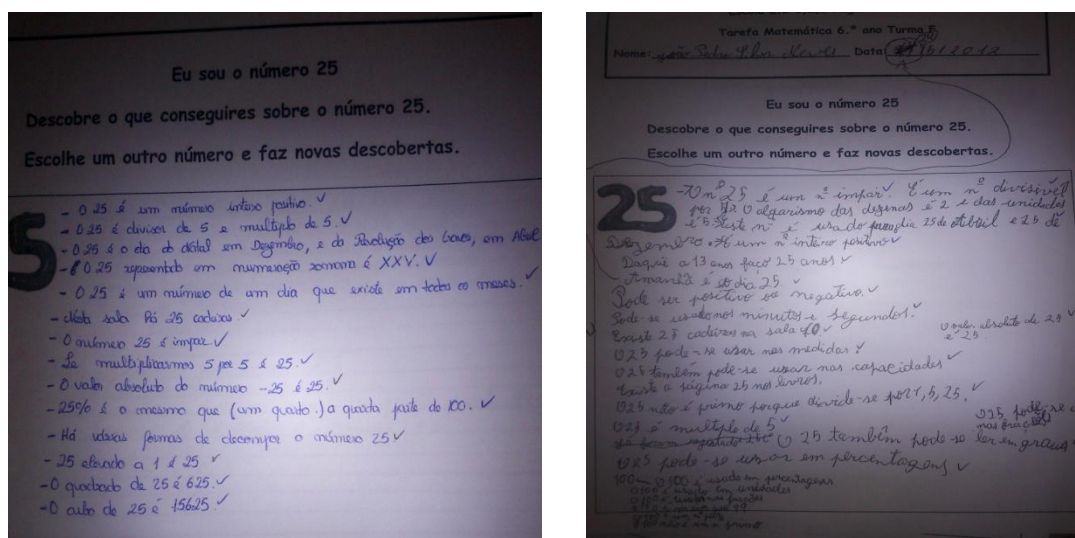 Eu sou o número 25
Descobre o que conseguires sobre o número 25.
Escolhe um outro número e faz novas descobertas.
5
- O 25 é um número inteiro positivo. ✓
- O 25 é divisor de 5 e multiplo de 5. ✓
- O 25 é o dia do Natal em Dezembro, e da Revolução dos Cravos, em Abril
- O 25 representado em numeração romana é XXV. ✓
- O 25 é um número de um dia que existe em todos os meses. ✓
- Nesta sala há 25 cadeiras ✓
- O número 25 é impar. ✓
- Se multiplicarmos 5 por 5 é 25. ✓
- O valor absoluto do número -25 é 25. ✓
- 25% é o mesmo que (um quarto.) a quarta parte de 100. ✓
- Há várias formas de decompor o número 25 ✓
- 25 elevado a 1 é 25 ✓
- O quadrado de 25 é 625. ✓
- O cubo de 25 é 15625. ✓
Tarefa Matemática 6.º ano Turma F
Nome: João Pedro Silva Neves Data: /2012
Eu sou o número 25
Descobre o que conseguires sobre o número 25.
Escolhe um outro número e faz novas descobertas.
25
- O nº 25 é um nº impar. ✓ É um nº divisível
por O algarismo das dezenas é 2 e das unidades
é 5. Este nº é usado para dia 25 de Abril e 25 de
Dezembro. É um nº inteiro positivo ✓
Daqui a 13 anos faço 25 anos ✓
Amanhã é dia 25. ✓
Pode ser positivo ou negativo. ✓
Pode-se usar nos minutos e segundos. ✓
Existe 25 cadeiras na sala ✓
O valor absoluto de 25 ✓
é 25
O 25 pode-se usar nas medidas ✓
O 25 também pode-se usar nas capacidades ✓
Existe a página 25 nos livros.
O 25 não é primo porque divide-se por 1, 5, 25. ✓
O 25 é multiplo de 5 ✓
O 25 pode-se
nas frações
O 25 também pode-se ler em graus
O 25 pode-se usar em percentagens ✓
O 100 é usado em percentagens
O 100 é usado em unidades